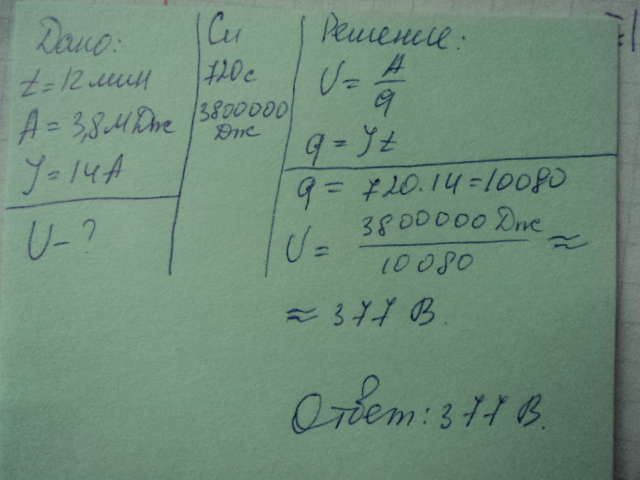 Дано:
t = 12 мин
A = 3,8 МДж
I = 14 A
U - ?
Си
720 с
3800000
Дж
Решение:
U = A/q
q = It
q = 720 · 14 = 10080
U = 3800000 Дж / 10080 ≈
≈ 377 В.
Ответ: 377 В.